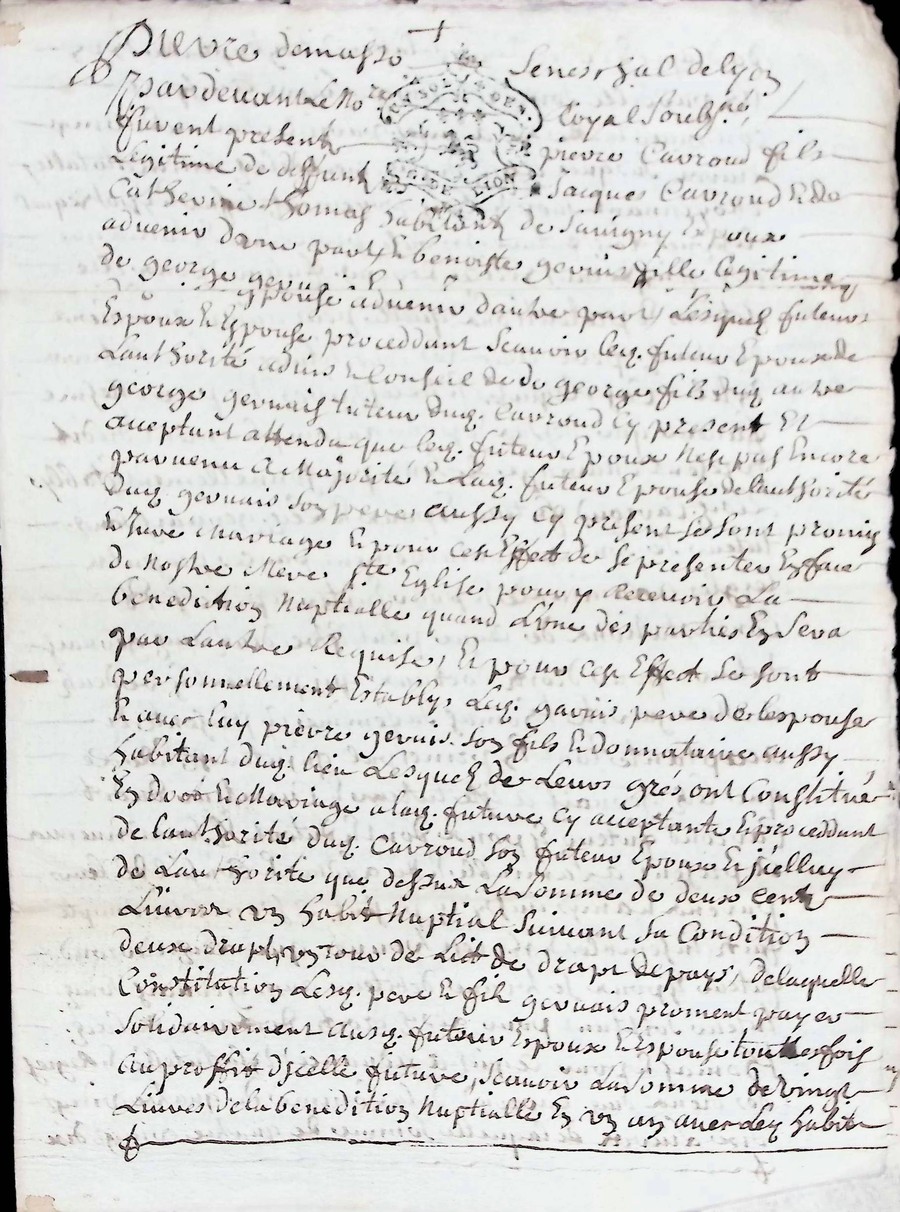 Pierre demasso Seneschal de lyon
Pardevant Le No.re Royal Soubz.né,
furent presents pierre Cavroud fils
Legitime de deffunt Jacques Cavroud & de
Catherine thomas habitant de Savigny Epoux
advenir d'une part, & benoiste gervais fille legitime
de george gervais
Espouse advenir dautre part, Lesquels futeurs
Espoux & Espouse proceddant Scavoir leq. futeur Epoux de
Lauthorité advis & Conseil de de george fils duq. autre
george gervais tuteur duq. Cavroud Cy present Et
acceptant attendu que leq. futeur Epoux Nest pas Encore
parvenu a Majorité & Laq. futeur Epouse de lauthorité
duq. gervais son pere aussy Cy present se sont promis
& Jure Mariage & pour cest Effect de se presenter En face
de Nostre Mere Ste Eglise pour y Recevoir La
benediction Nuptialle quand L'une des parties En Sera
par Lautre Requise, & pour cest Effect se sont
personnellement Establys Leq. gervais pere de lespouse
& avec luy pierre gervais son fils & donnataire aussy
habitant duq. lieu Lesquels de Leurs grés ont Constitué
En dot & Mariage a laq. future Cy acceptante & proceddant
de lauthorité duq. Cavroud son futeur Epoux & jcelluy
de Lauthorité que dessus La somme de deux cents
Livres un habit Nuptial Suivant sa Condition
deux draps, un tour de Lict de drapt de pays, delaquelle
Constitution Lesq. pere & fils gervais proment payer
solidairement ausq. futeur Espoux & Espouse touttesfois
au proffit djcelle future, scavoir La somme de vingt
Livres de la benedition Nuptialle En un an avec Les habits